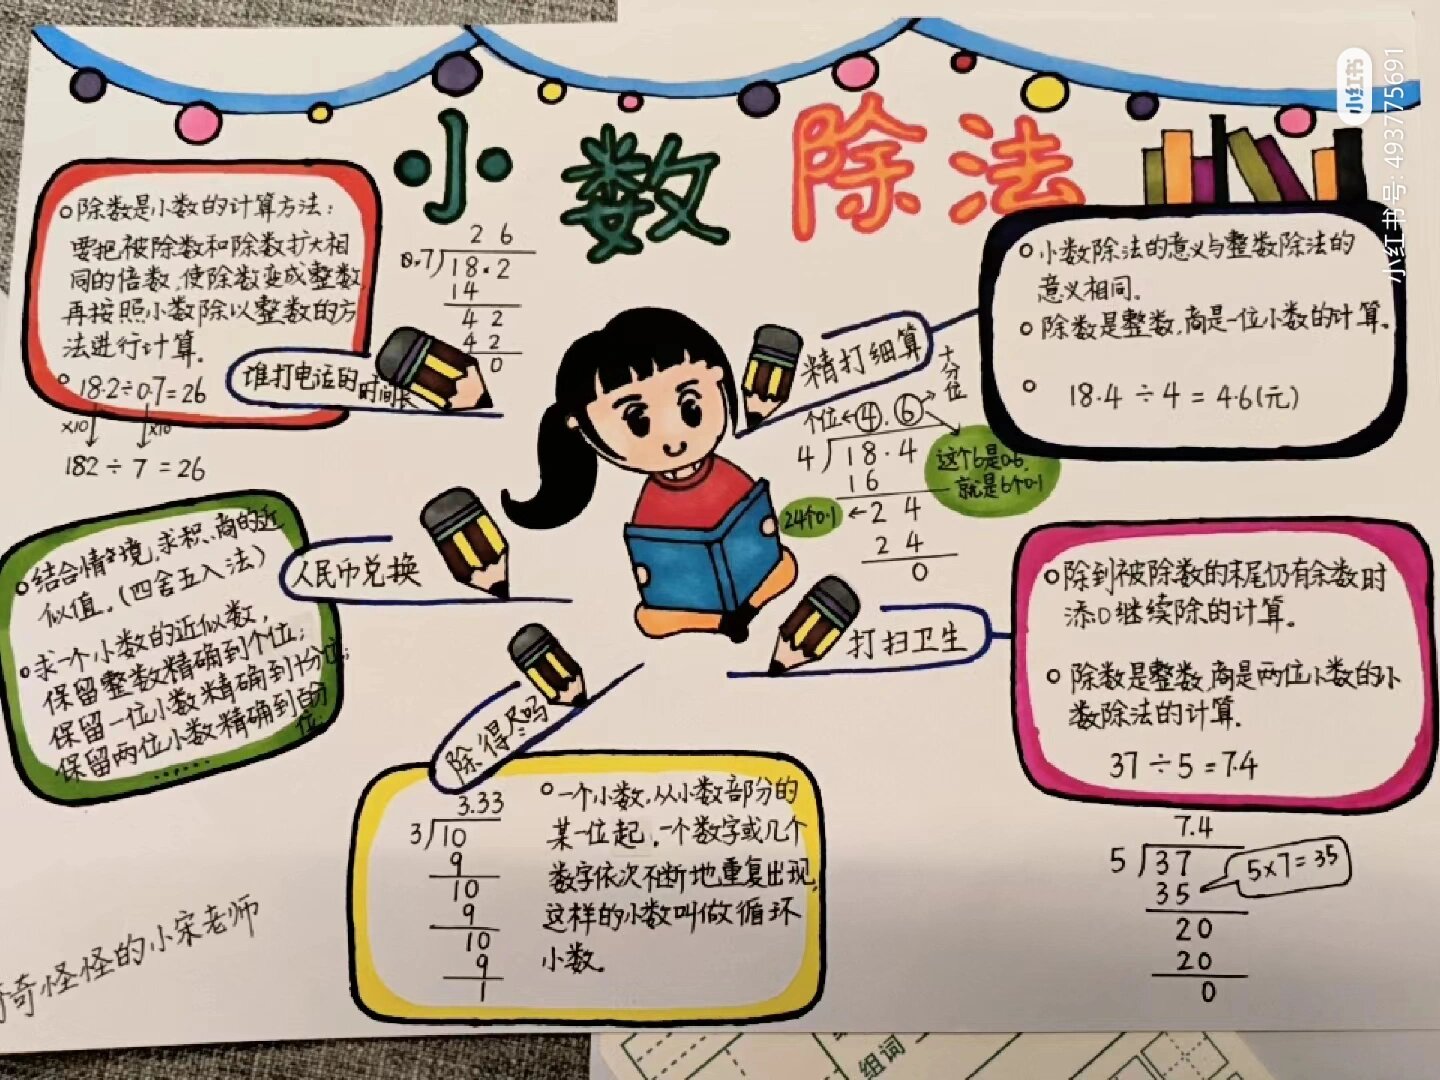 小数除法
小红书
小红书号: 493775691
除数是小数的计算方法：
要把被除数和除数扩大相
同的倍数，使除数变成整数
再按照小数除以整数的方
法进行计算。
18.2÷0.7=26
x10 x10
182÷7=26
谁打电话的时间长
2 6
0.7 18.2
14
4 2
4 2
0
精打细算
小数除法的意义与整数除法的
意义相同。
除数是整数，商是一位小数的计算。
18.4÷4=4.6(元)
十分位
个位 4.6
4 18.4
16
24个0.1 2 4
2 4
0
这个6是0.6
就是6个0.1
人民币兑换
结合情环境，求积、商的近
似值。（四舍五入法）
求一个小数的近似数，
保留整数精确到个位；
保留一位小数精确到十份位；
保留两位小数精确到百份
位
……
打扫卫生
除到被除数的末尾仍有余数时
添0继续除的计算。
除数是整数，商是两位小数的小
数除法的计算。
37÷5=7.4
7.4
5 37
35
5x7=35
20
20
0
除得尽吗
3.33
3 10
9
10
9
10
9
1
一个小数，从小数部分的
某一位起，一个数字或几个
数字依次不断地重复出现，
这样的小数叫做循环
小数。
奇怪怪的小宋老师
组词